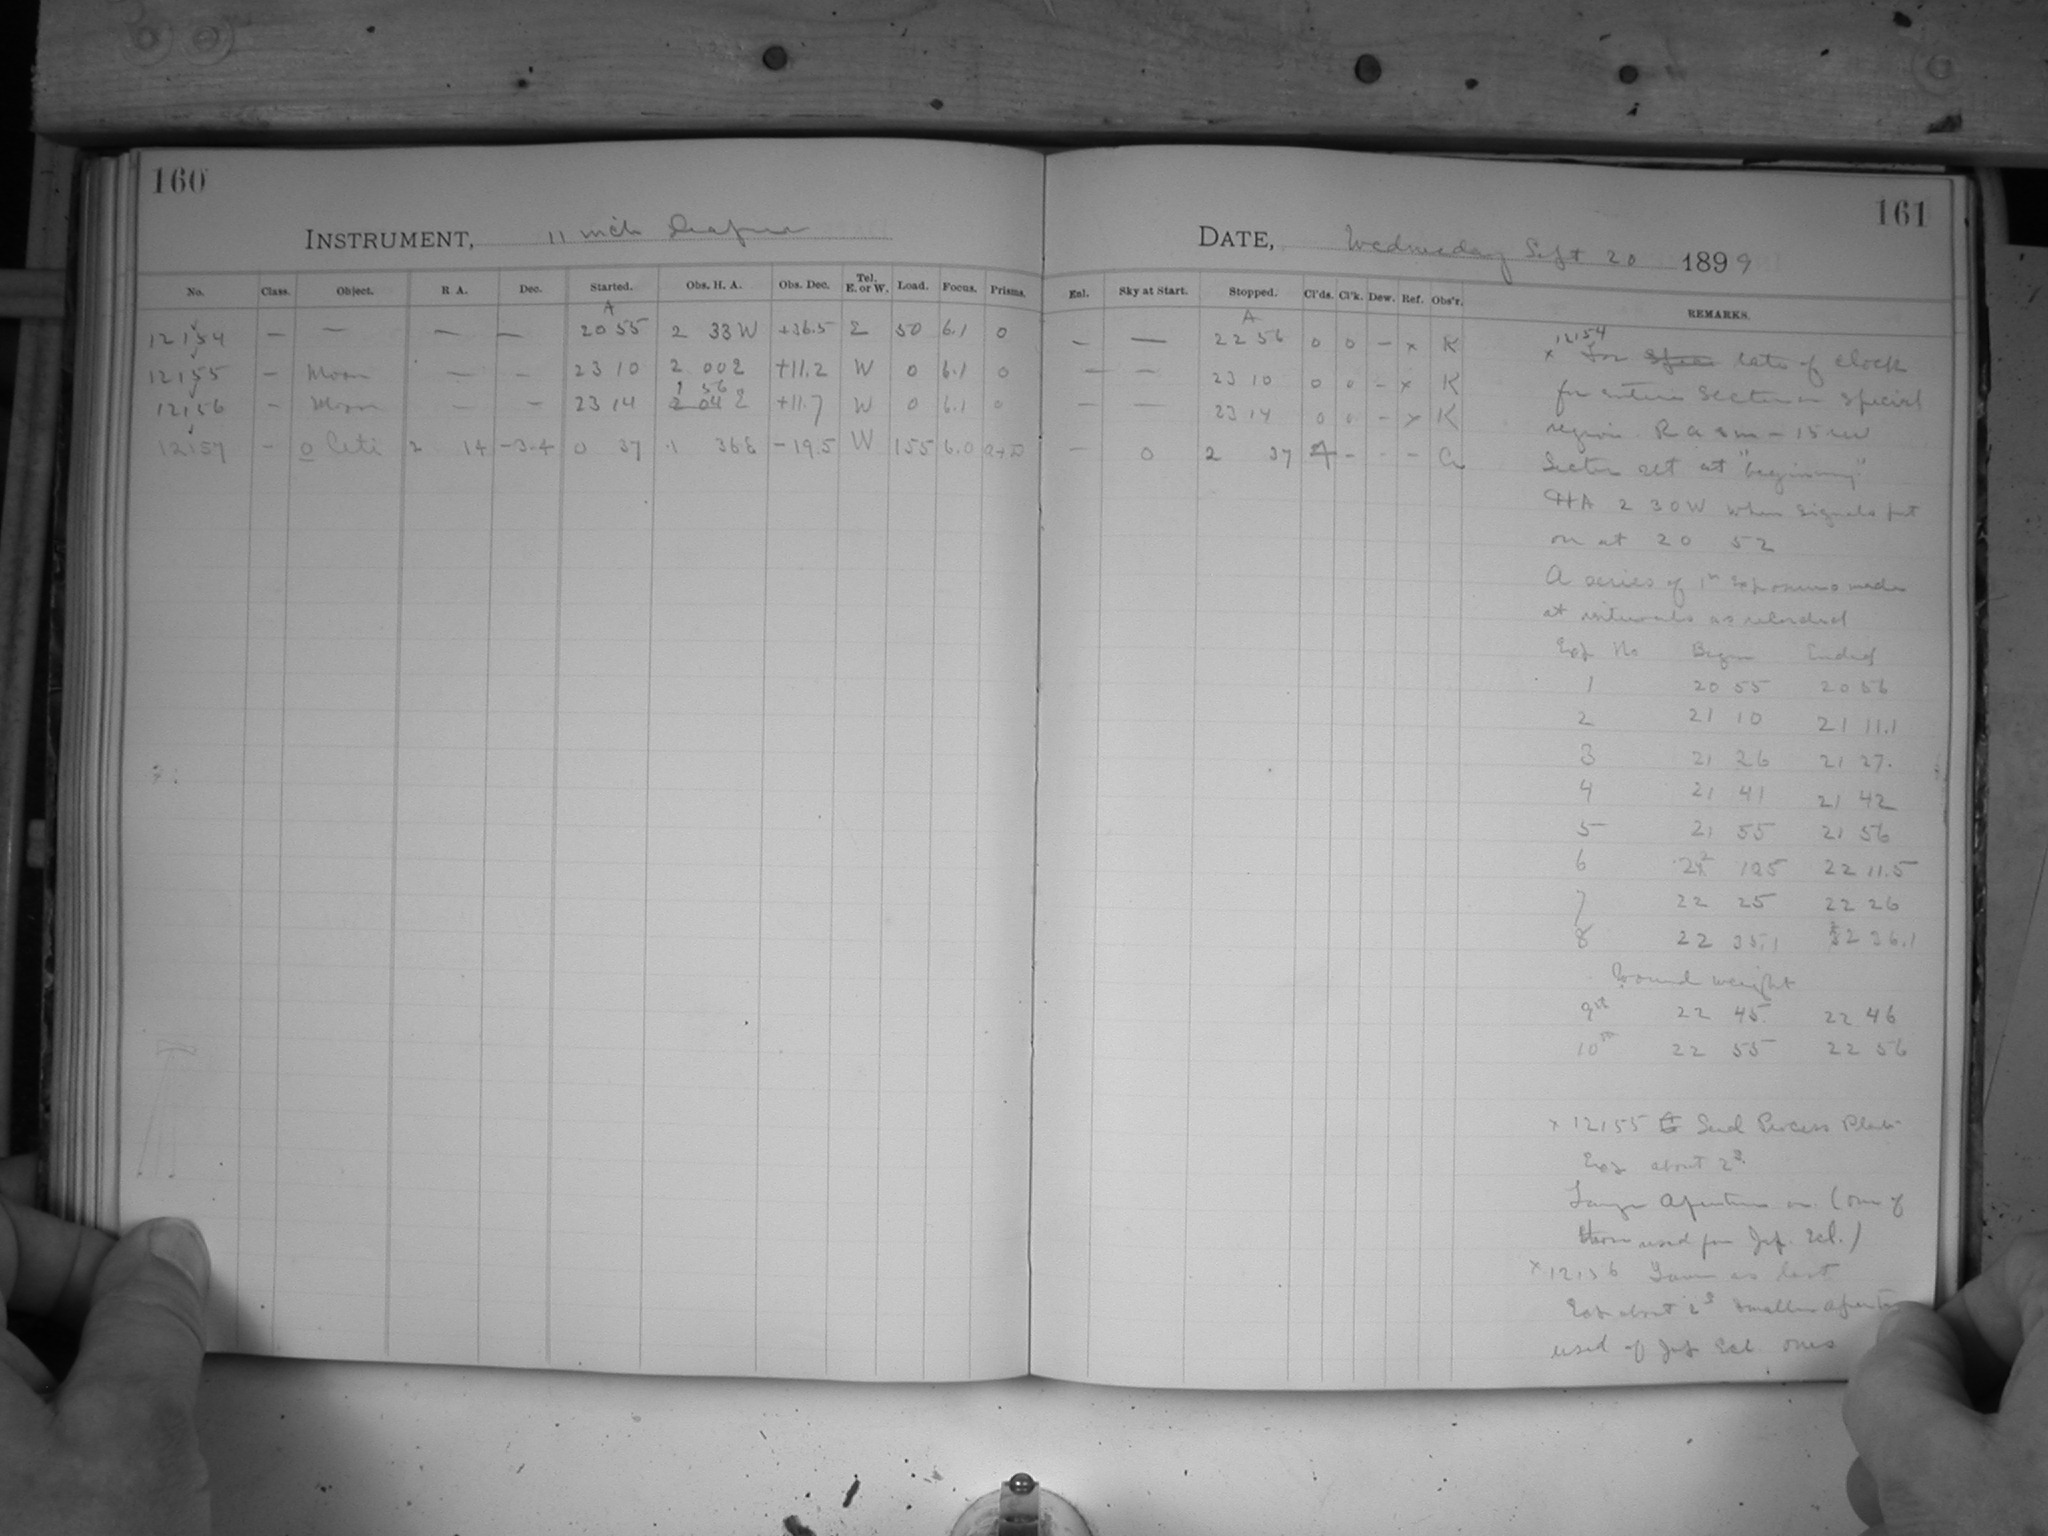 160
INSTRUMENT, 11 inch Draper
No. Class. Object. R A. Dec. Started. Obs. H. A. Obs. Dec. Tel. E. or W. Load. Focus. Prisms.
A
12154 — — — — 20 55 2 33 W +36.5 E 50 6.1 0
12155 — Moon — — 23 10 2 00 E +11.2 W 0 6.1 0
1 56
12156 — Moon — — 23 14 2 04 E +11.7 W 0 6.1 0
12157 — o Ceti 2 14 -3.4 0 37 1 36 E -19.5 W 155 6.0
161
DATE, Wednesday Sept 20 1899
Enl. Sky at Start. Stopped. Cl'ds. Cl'k. Dew. Ref. Obs'r. REMARKS.
A
— — 22 56 0 0 — x K
— — 23 10 0 0 — x K
— — 23 14 0 0 — x K
— 0 2 37 — — —
12154
x For rate of clock
for entire Sector on special
region. R a
Sector set at "beginning"
HA 2 30 W when signals put
on at 20 52
A series of 1m exposures made
at intervals as recorded
Exp No Began Ended
1 20 55 20 56
2 21 10 21 11.1
3 21 26 21 27.
4 21 41 21 42
5 21 55 21 56
6 22 10.5 22 11.5
7 22 25 22 26
8 22 35.1 22 36.1
Wound weight
9th 22 45 22 46
10th 22 55 22 56
x 12155 Seed Process Plate
Exp about 2s.
Larger Aperture on. (one of
those used for Jup. Ecl.)
x 12156 Same as last
Exp about 2s smaller aperture
used of Jup Ecl. ones